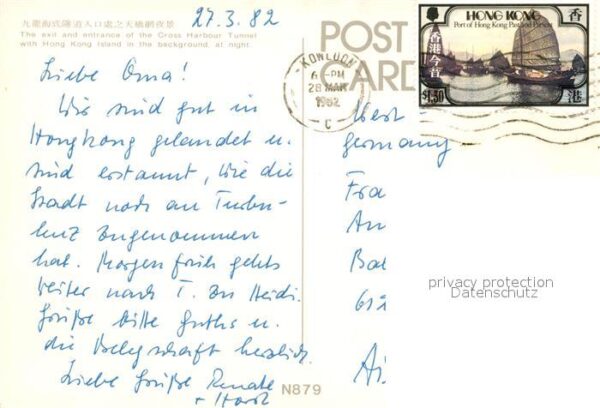 27.3.82
九龍海底隧道入口處之天橋網夜景
The exit and entrance of the Cross Harbour Tunnel
with Hong Kong Island in the background, at night.
Liebe Oma!
Wir sind gut in
Hongkong gelandet u.
sind erstaunt, wie die
Stadt noch an Turbu-
lenz zugenommen
hat. Morgen früh gehts
weiter nach T. zu Heidi.
Grüße bitte Guths u.
die Belegschaft herzlich.
Liebe Grüße Renate
+ Horst
N879
POST
CARD
KOWLOON
6 - PM
28 MAR
1982
C
HONG KONG
Port of Hong Kong Past and Present
香港今昔
香港
$1.30
West
Germany
Fra
An
Bad
Ai
privacy protection
Datenschutz